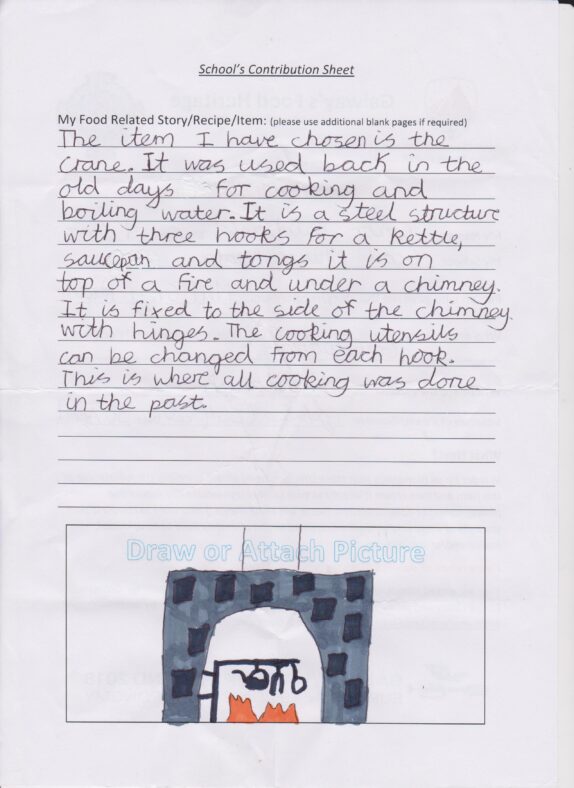 School's Contribution Sheet
My Food Related Story/Recipe/Item: (please use additional blank pages if required)
The item I have chosen is the
crane. It was used back in the
old days for cooking and
boiling water. It is a steel structure
with three hooks for a kettle,
saucepan and tongs it is on
top of a fire and under a chimney.
It is fixed to the side of the chimney
with hinges. The cooking utensils
can be changed from each hook.
This is where all cooking was done
in the past.
Draw or Attach Picture